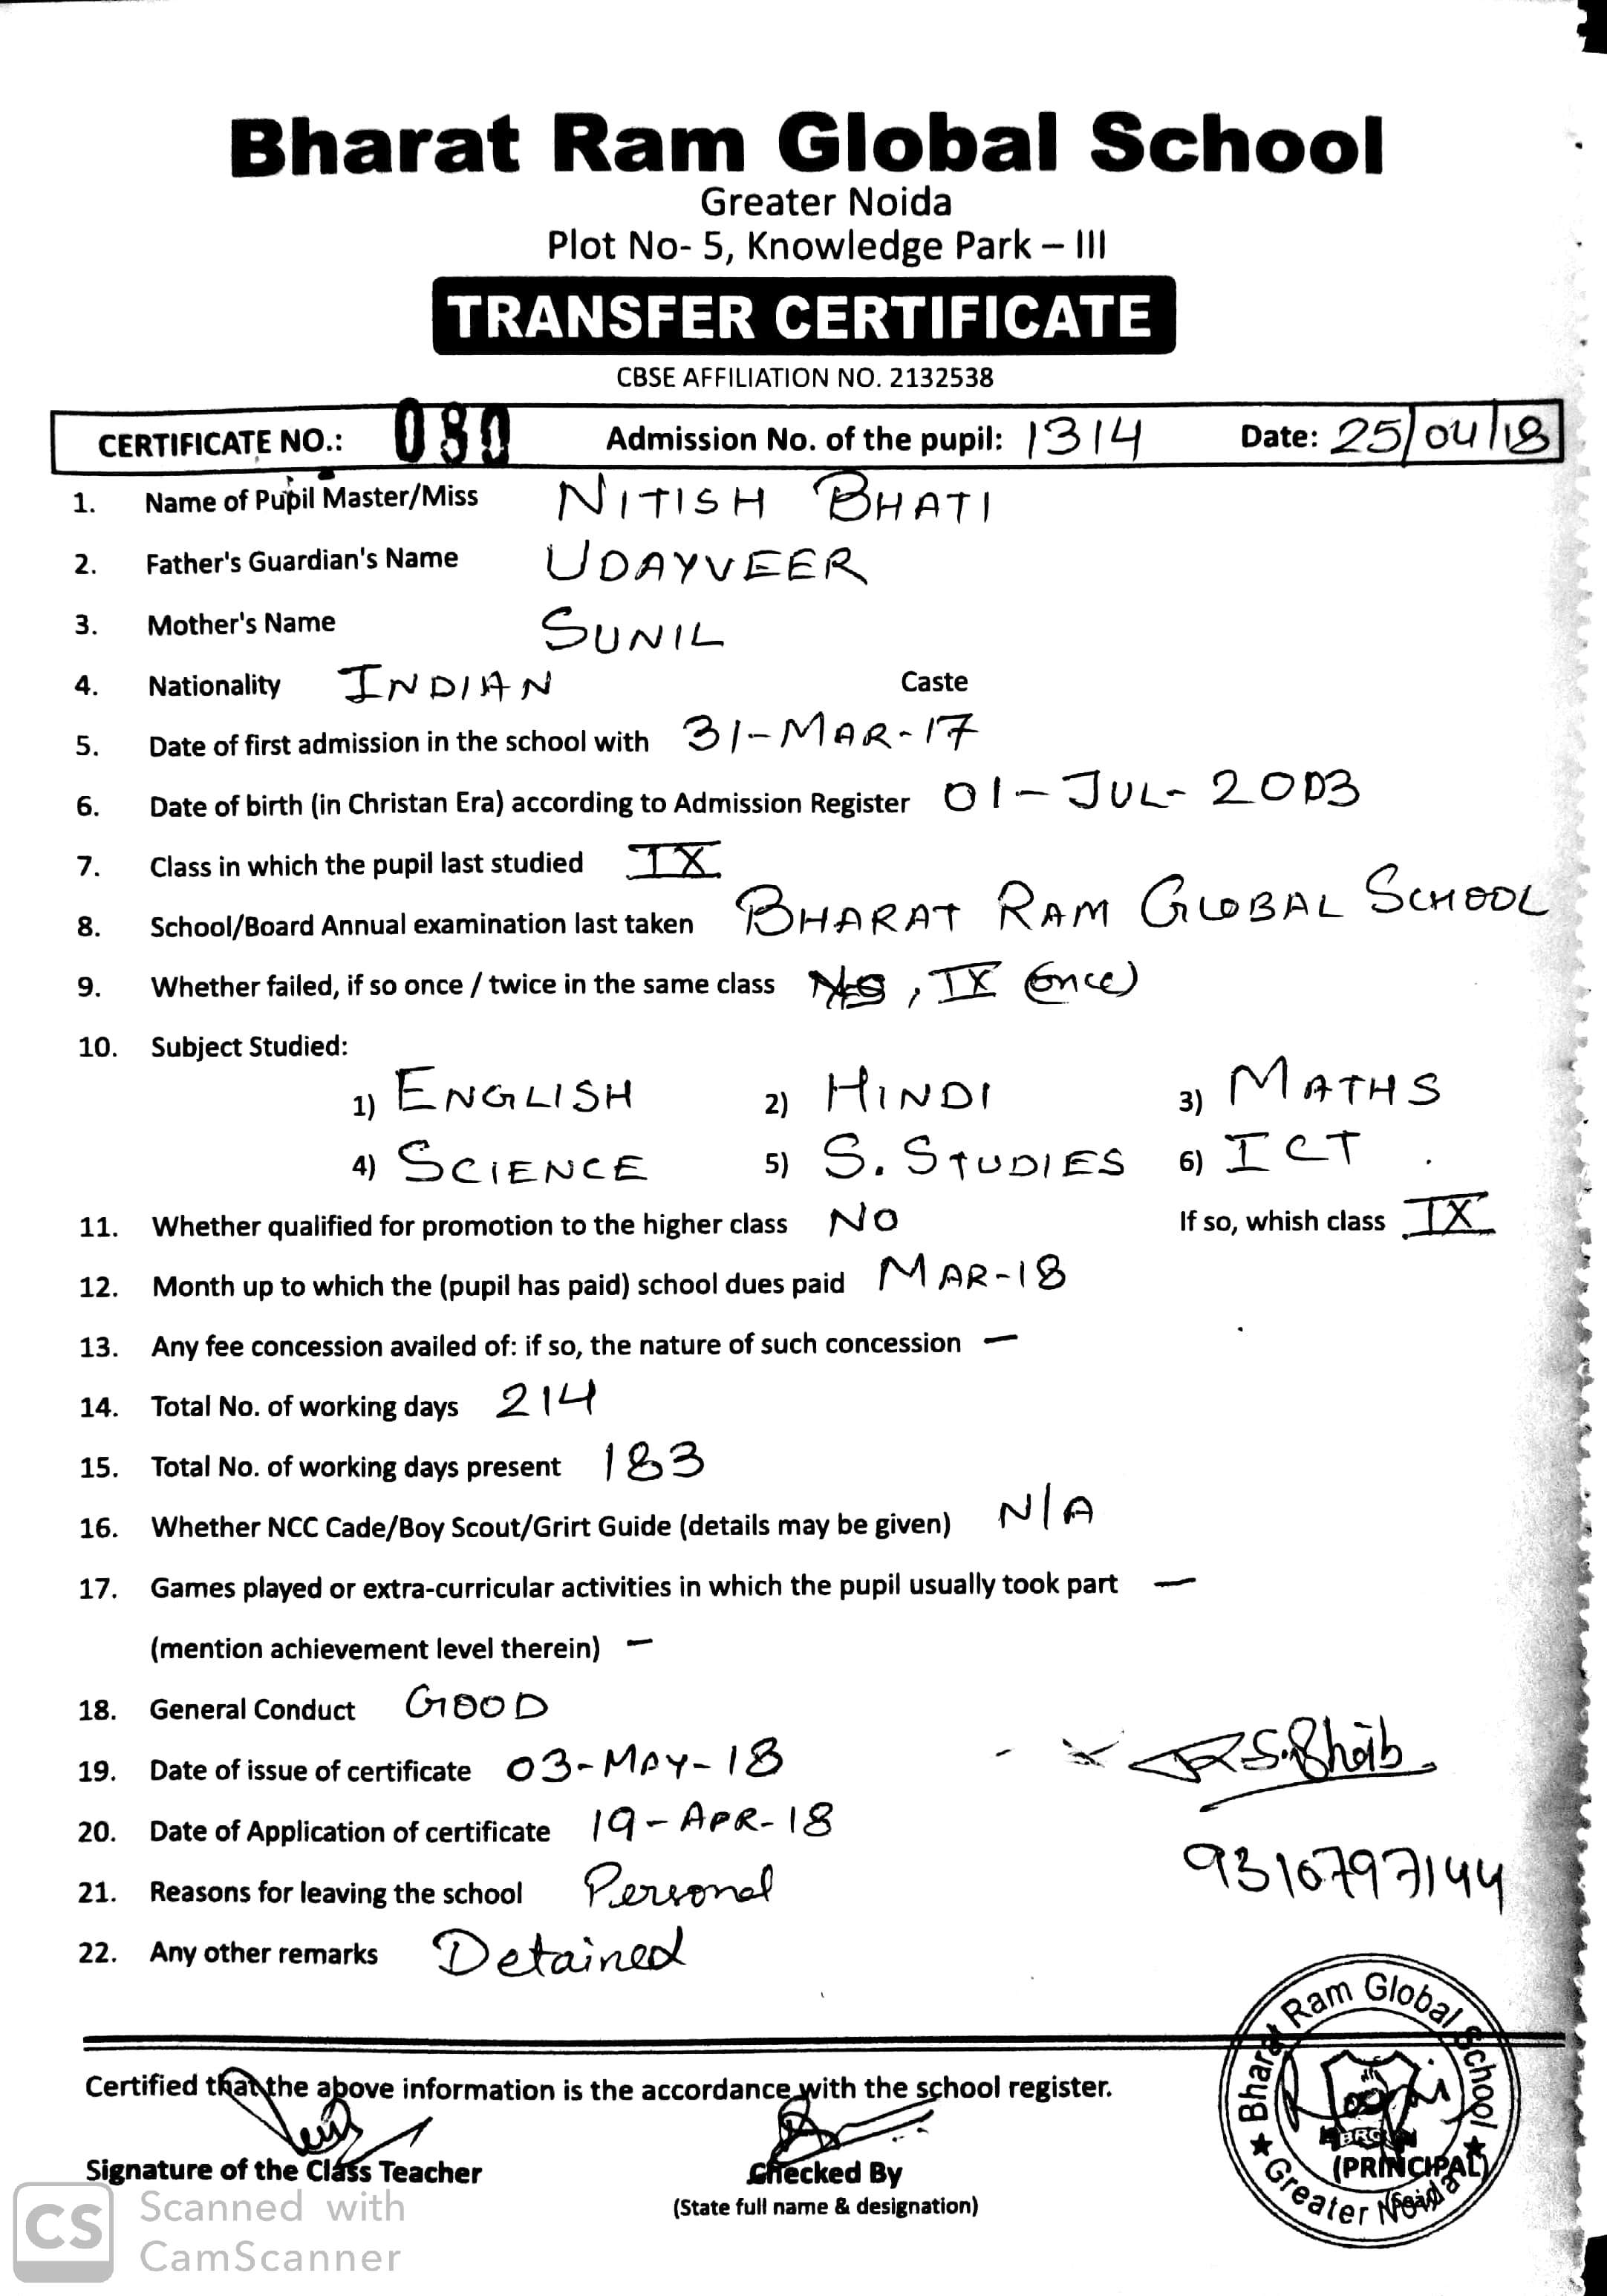 Bharat Ram Global School
Greater Noida
Plot No- 5, Knowledge Park – III
TRANSFER CERTIFICATE
CBSE AFFILIATION NO. 2132538
CERTIFICATE NO.: 080 Admission No. of the pupil: 1314 Date: 25/04/18
1. Name of Pupil Master/Miss NITISH BHATI
2. Father's Guardian's Name UDAYVEER
3. Mother's Name SUNIL
4. Nationality INDIAN Caste
5. Date of first admission in the school with 31-MAR-17
6. Date of birth (in Christan Era) according to Admission Register 01-JUL-2003
7. Class in which the pupil last studied IX
8. School/Board Annual examination last taken BHARAT RAM GLOBAL SCHOOL
9. Whether failed, if so once / twice in the same class , IX (once)
10. Subject Studied:
1) ENGLISH 2) HINDI 3) MATHS
4) SCIENCE 5) S. STUDIES 6) ICT
11. Whether qualified for promotion to the higher class NO If so, whish class IX
12. Month up to which the (pupil has paid) school dues paid MAR-18
13. Any fee concession availed of: if so, the nature of such concession —
14. Total No. of working days 214
15. Total No. of working days present 183
16. Whether NCC Cade/Boy Scout/Grirt Guide (details may be given) N/A
17. Games played or extra-curricular activities in which the pupil usually took part —
(mention achievement level therein) —
18. General Conduct GOOD
19. Date of issue of certificate 03-MAY-18
20. Date of Application of certificate 19-APR-18
9310797144
21. Reasons for leaving the school Personal
22. Any other remarks Detained
Certified that the above information is the accordance with the school register.
Signature of the Class Teacher Checked By (PRINCIPAL)
(State full name & designation) (Seal)
Bharat Ram Global School
Greater Noida
BRG
CS Scanned with
CamScanner